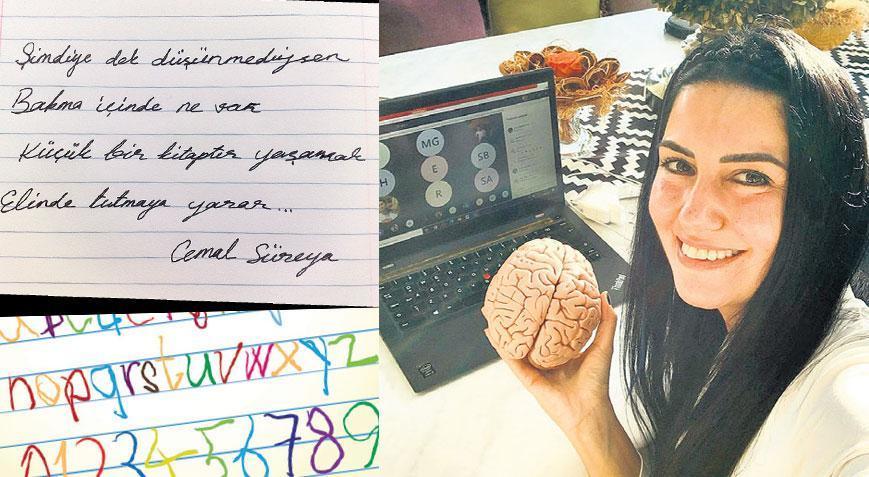 Şimdiye dek düşünmediysen
Bakma içinde ne var
Küçük bir kitaptır yaşamak
Elinde tutmaya yarar...
Cemal Süreya
nopqrstuvwxyz
0123456789
MG
E
SB
H
R
SA
ThinkPad